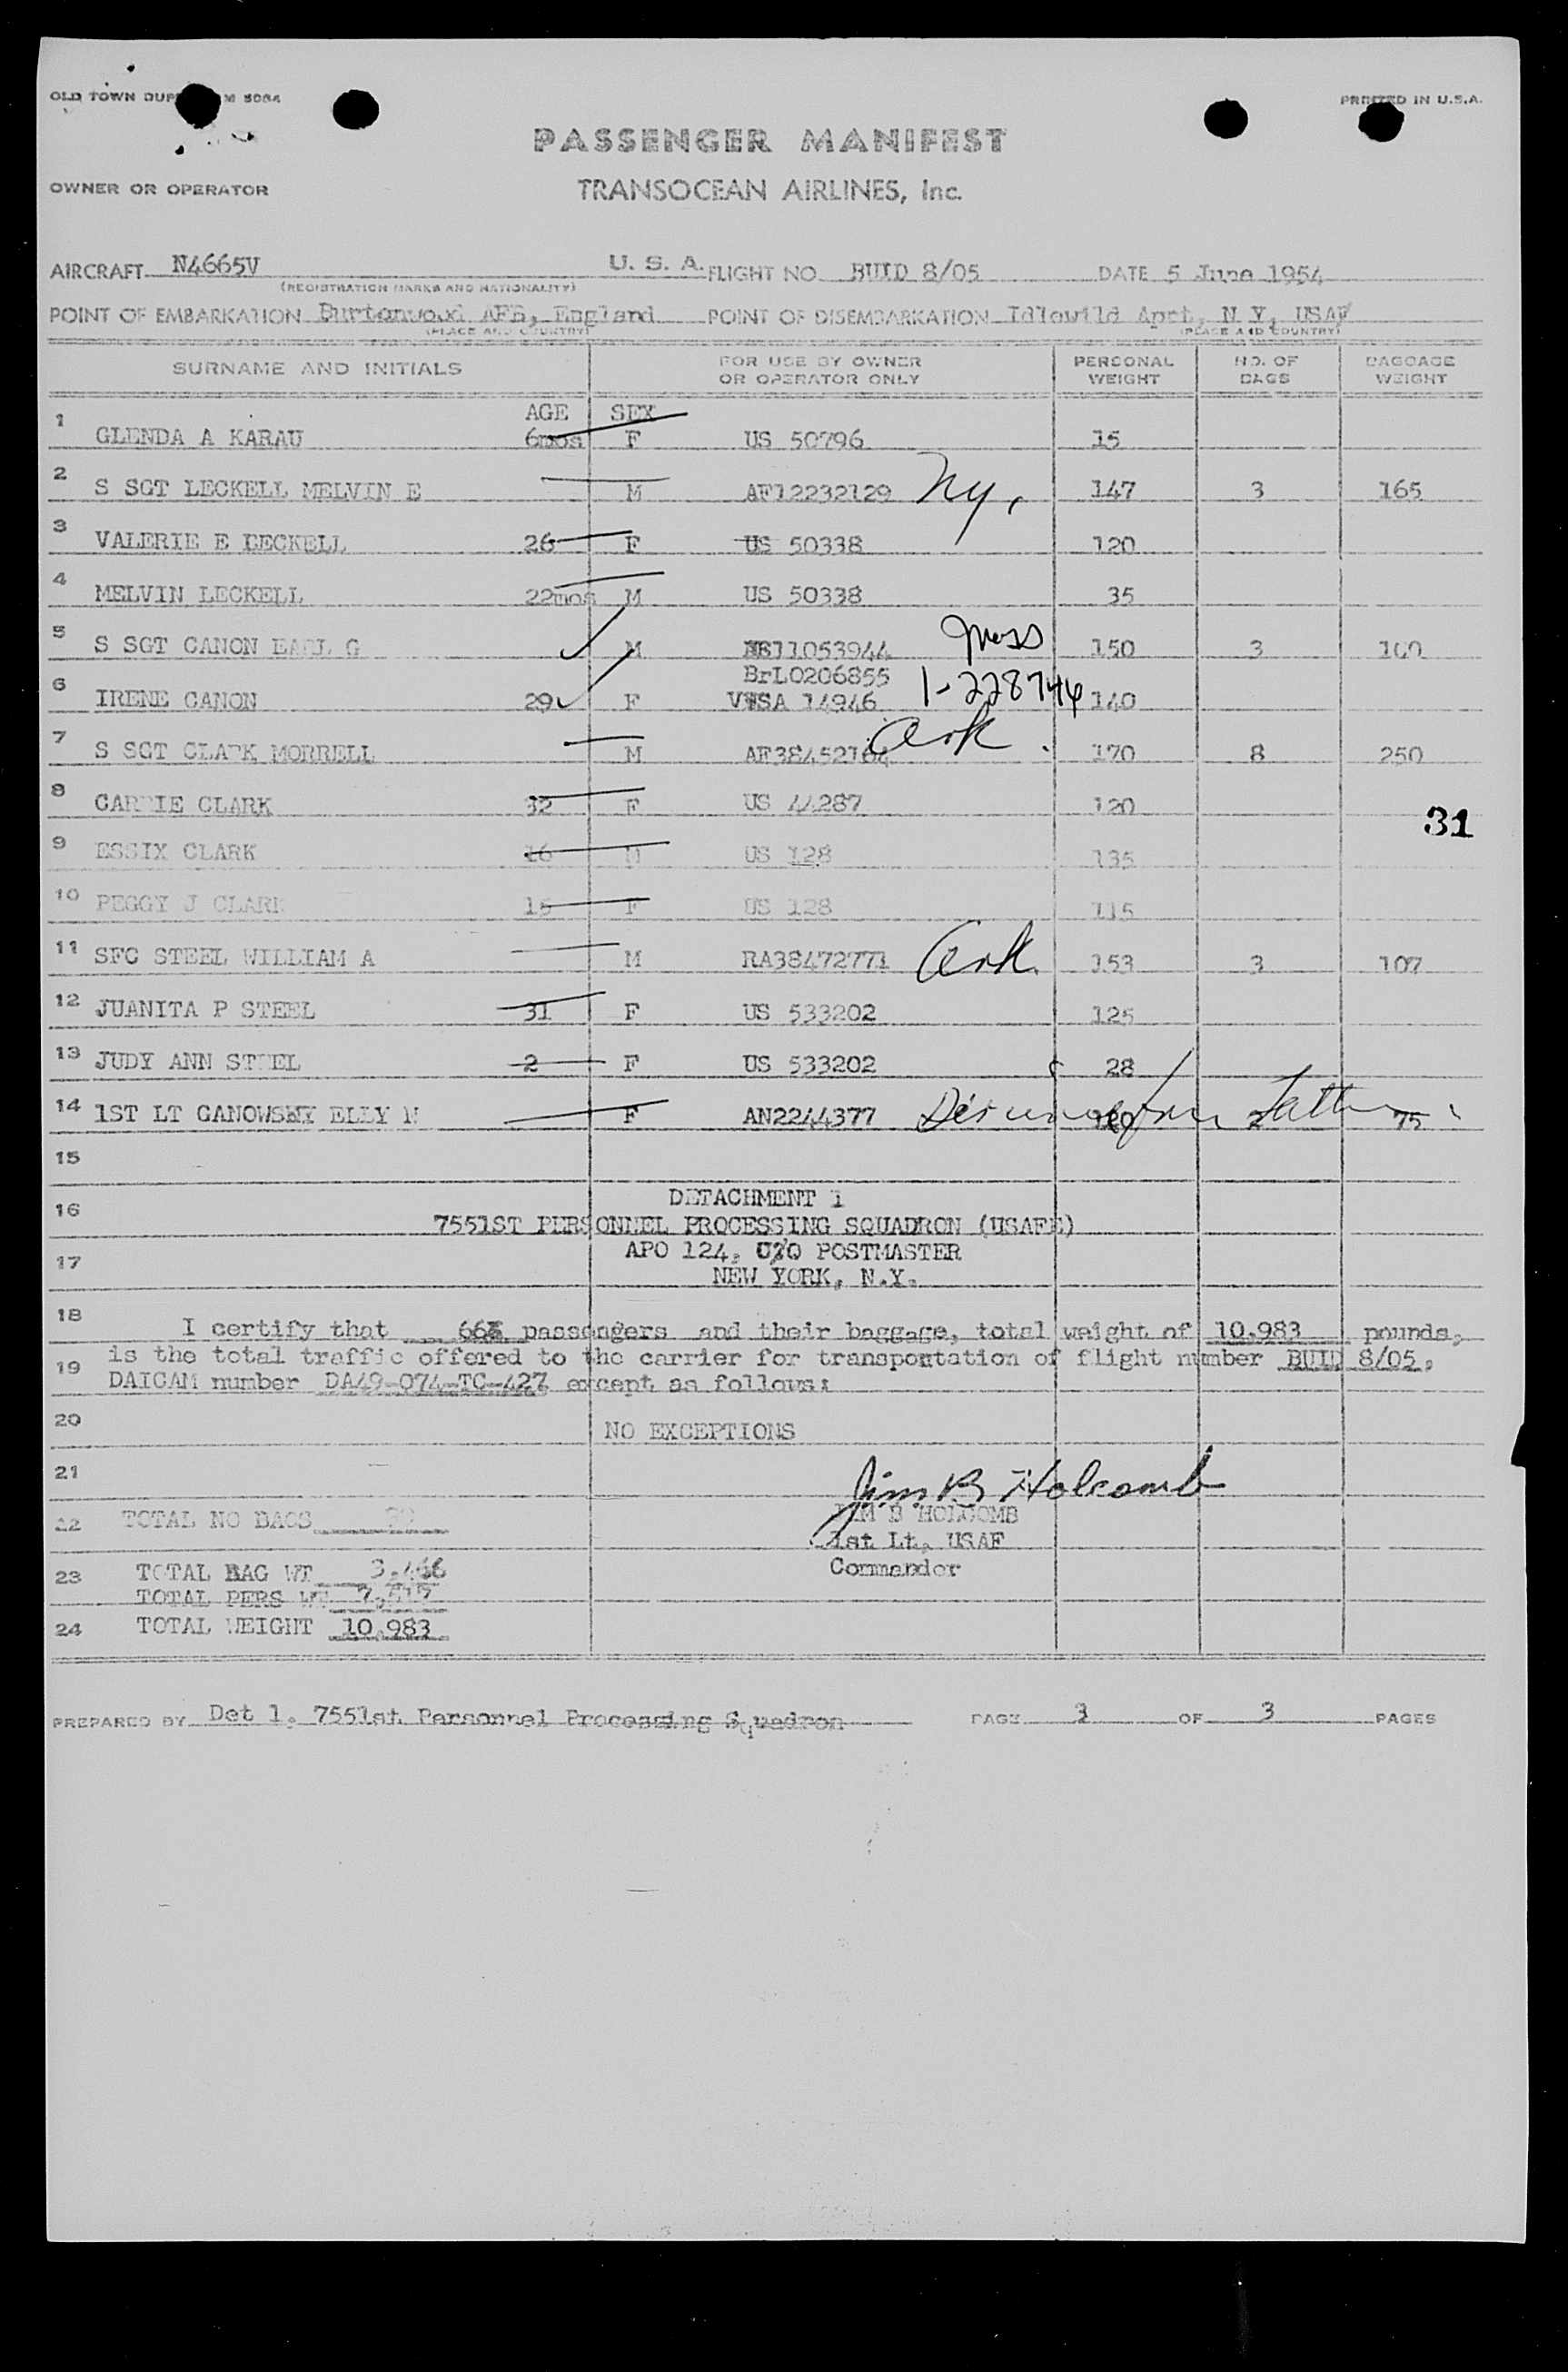 OLD TOWN
PRINTED IN U.S.A.
PASSENGER MANIFEST
OWNER OR OPERATOR TRANSOCEAN AIRLINES, Inc.
AIRCRAFT N4665V U. S. A. FLIGHT NO. BUID 8/05 DATE 5 June 1954
(REGISTRATION MARKS AND NATIONALITY)
POINT OF EMBARKATION Burtonwood AFB, England POINT OF DISEMBARKATION Idlewild Aprt, N Y, USA
(PLACE AND COUNTRY) (PLACE AND COUNTRY)
SURNAME AND INITIALS FOR USE BY OWNER OR OPERATOR ONLY PERSONAL WEIGHT NO. OF BAGS BAGGAGE WEIGHT
AGE SEX
1 GLENDA A KARAU 6mos F US 50796 15
2 S SGT LECKELL MELVIN E M AF12232129 NY. 147 3 165
3 VALERIE E LECKELL 26 F US 50338 120
4 MELVIN LECKELL 22mos M US 50338 35
5 S SGT CANON EARL G M 11053944 Mass 150 3 100
BrLO206855
6 IRENE CANON 29 F VISA 14946 1-228744 140
7 S SGT CLARK MORRELL M AF38452164 Ark. 170 8 250
8 CARRIE CLARK 32 F US 44287 120
31
9 ESSIX CLARK 16 M US 128 135
10 PEGGY J CLARK 15 F US 128 115
11 SFC STEEL WILLIAM A M RA38472771 Ark. 153 3 107
12 JUANITA P STEEL 31 F US 533202 125
13 JUDY ANN STEEL 2 F US 533202 28
14 1ST LT CANOWSKY ELLY N F AN2244377 75
15
DETACHMENT 1
16 7551ST PERSONNEL PROCESSING SQUADRON (USAFE)
17 APO 124, C/O POSTMASTER
NEW YORK, N.Y.
18 I certify that passengers and their baggage, total weight of 10,983 pounds,
19 is the total traffic offered to the carrier for transportation of flight number BUID 8/05,
DAICAM number DA49-074-TC-427 except as follows:
20 NO EXCEPTIONS
21 Jim B Holcomb
22 TOTAL NO BAGS JIM B HOLCOMB
1st Lt, USAF
23 TOTAL BAG WT 3,466 Commander
TOTAL PERS WT 7,517
24 TOTAL WEIGHT 10,983
PREPARED BY Det 1, 7551st Personnel Processing Squadron PAGE 3 OF 3 PAGES